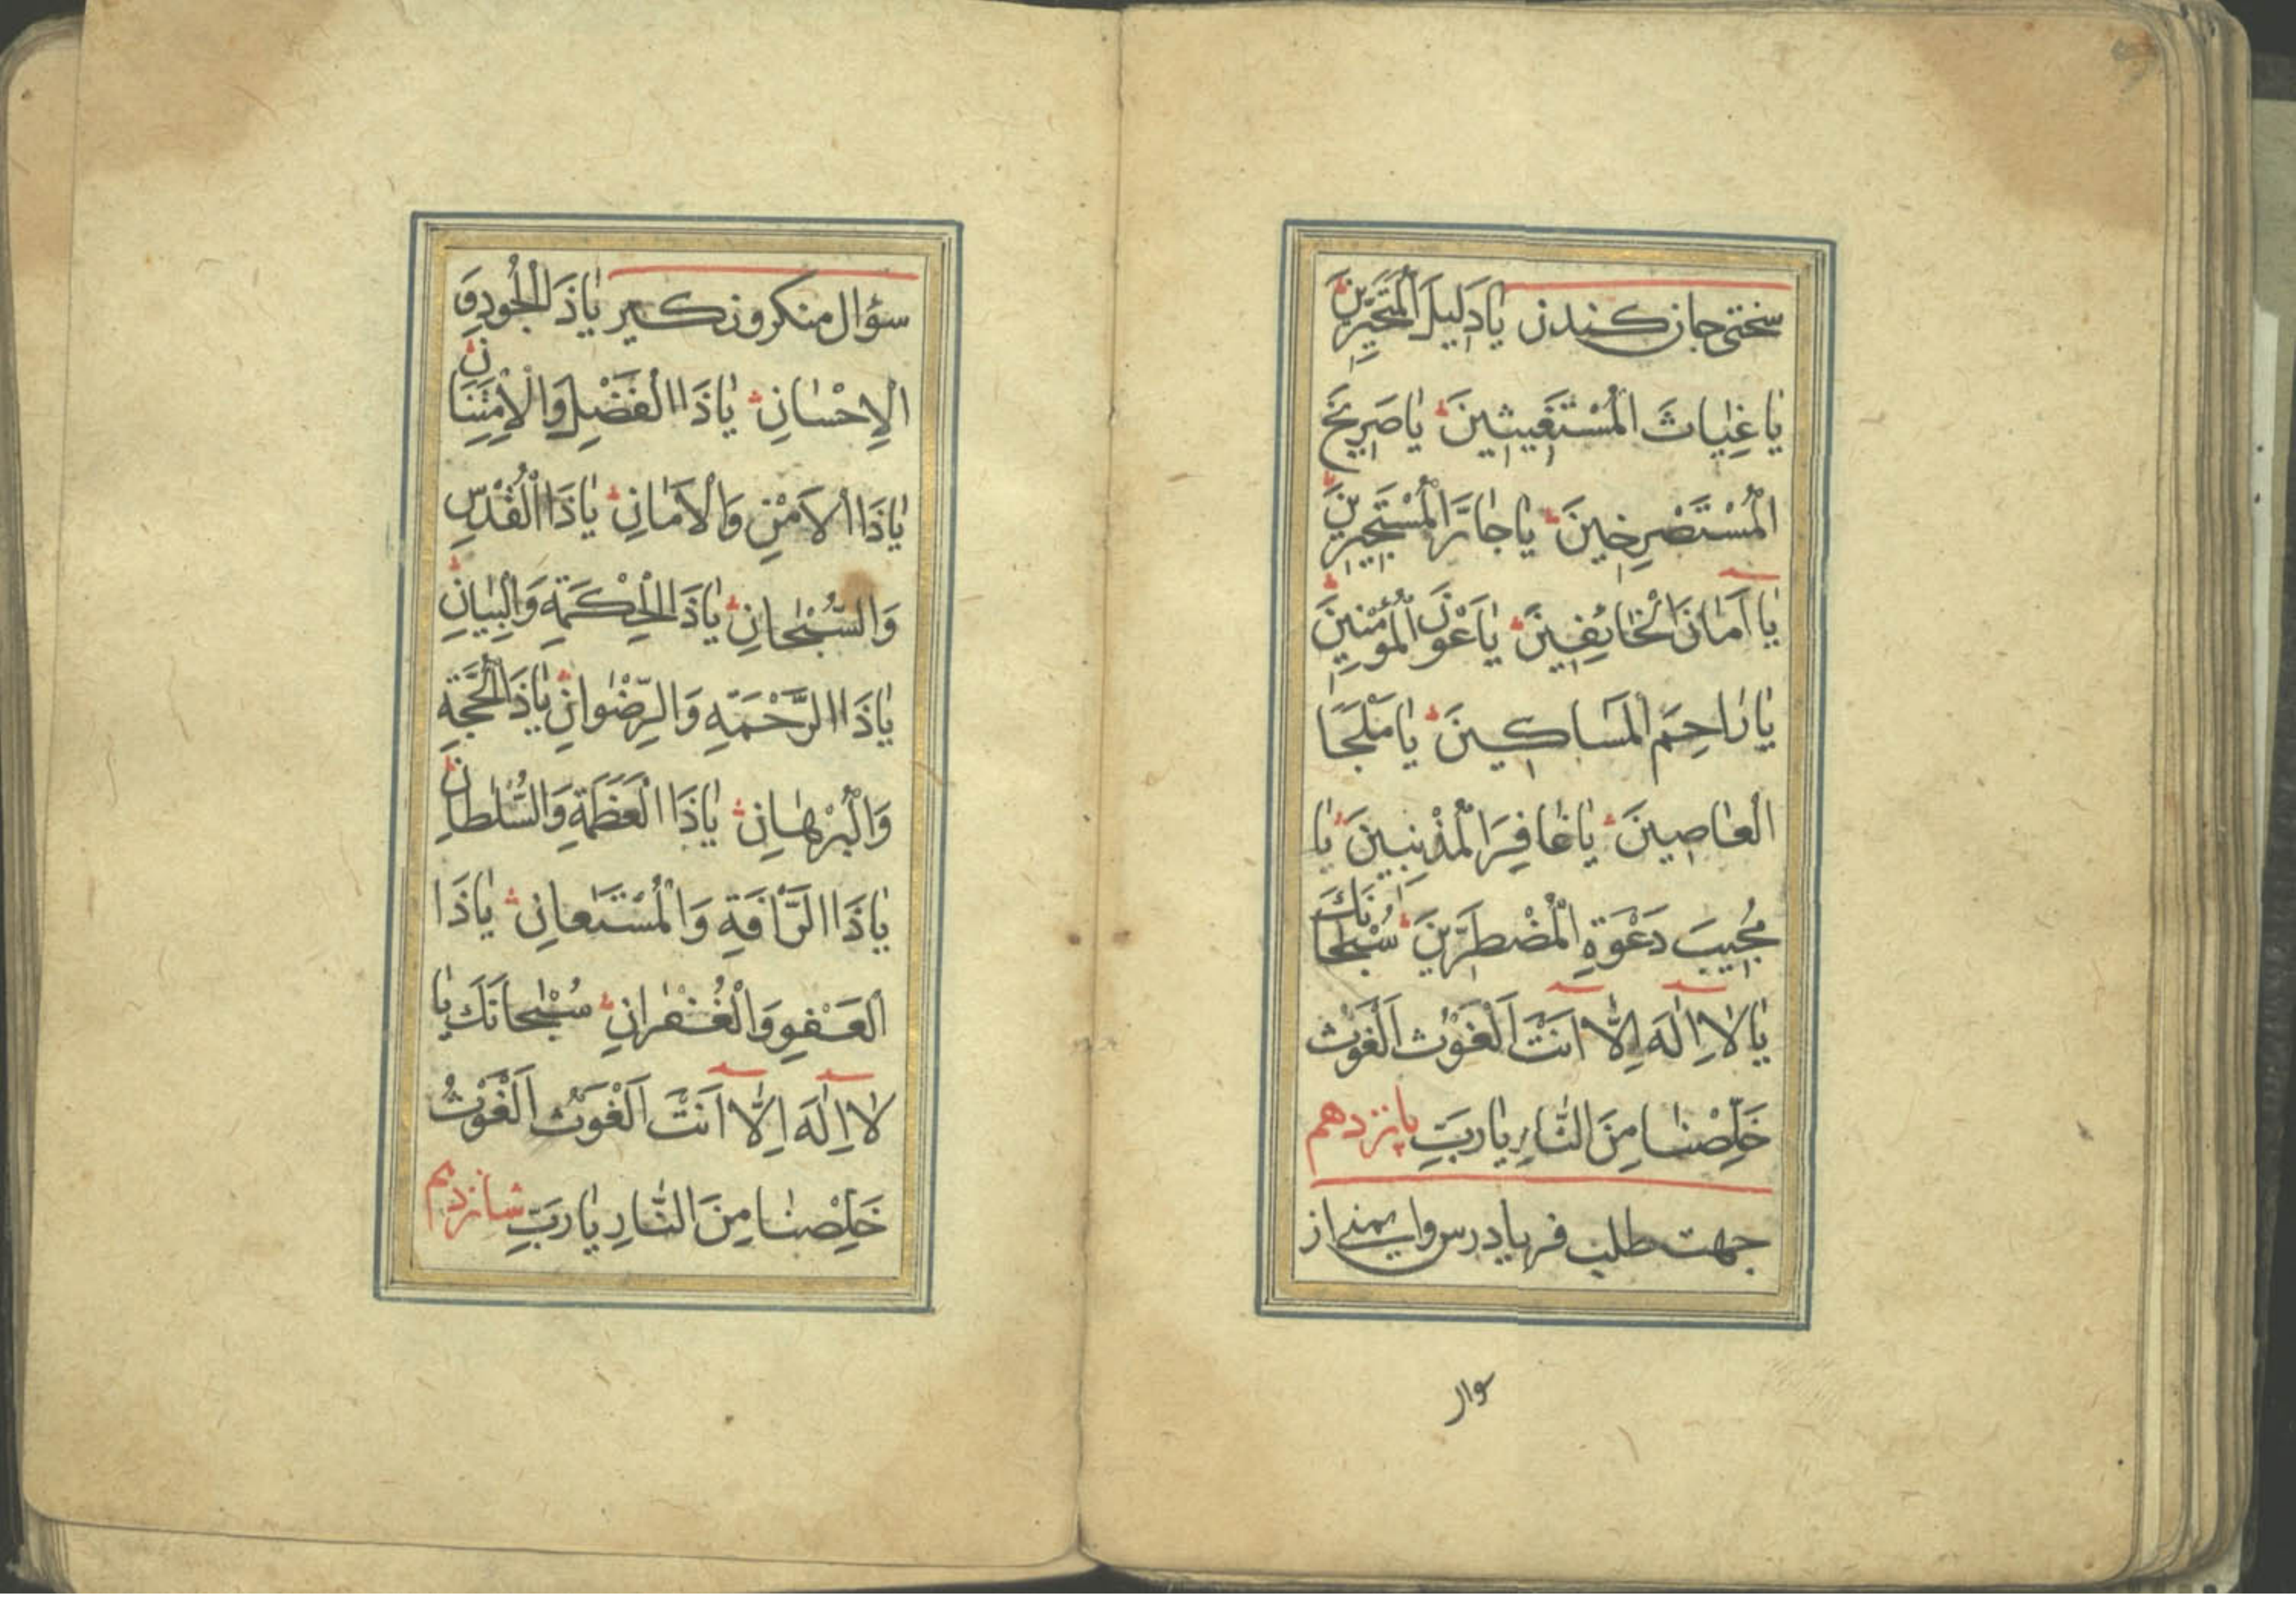 سختی جان کندن یا دَلیلَ الْمُتَحَیِّرینَ
یا غِیاثَ الْمُسْتَغیثینَ یا صَریخَ
الْمُسْتَصْرِخینَ یا جارَ الْمُسْتَجیرینَ
یا اَمانَ الْخائِفینَ یا عَوْنَ الْمُؤْمِنینَ
یا راحِمَ الْمَساکینَ یا مَلْجَاَ
الْعاصینَ یا غافِرَ الْمُذْنِبینَ یا
مُجیبَ دَعْوَةِ الْمُضْطَرّینَ سُبْحانَكَ
یا لا اِلٰهَ اِلّا اَنْتَ اَلْغَوْثَ اَلْغَوْثَ
خَلِّصْنا مِنَ النّارِ یا رَبِّ پانزدهم
جهت طلب فریادرس و ایمنی از
سوال
سؤال منکر و نکیر یا ذَا الْجُودِ وَ
الْاِحْسانِ یا ذَا الْفَضْلِ وَ الْاِمْتِنَانِ
یا ذَا الْاَمْنِ وَ الْاَمانِ یا ذَا الْقُدْسِ
وَ السُّبْحانِ یا ذَا الْحِکْمَةِ وَ الْبَیانِ
یا ذَا الرَّحْمَةِ وَ الرِّضْوانِ یا ذَا الْحُجَّةِ
وَ الْبُرْهانِ یا ذَا الْعَظَمَةِ وَ السُّلْطانِ
یا ذَا الرَّأْفَةِ وَ الْمُسْتَعانِ یا ذَا
الْعَفْوِ وَ الْغُفْرانِ سُبْحانَكَ یا
لا اِلٰهَ اِلّا اَنْتَ اَلْغَوْثَ اَلْغَوْثَ
خَلِّصْنا مِنَ النّارِ یا رَبِّ شانزدهم